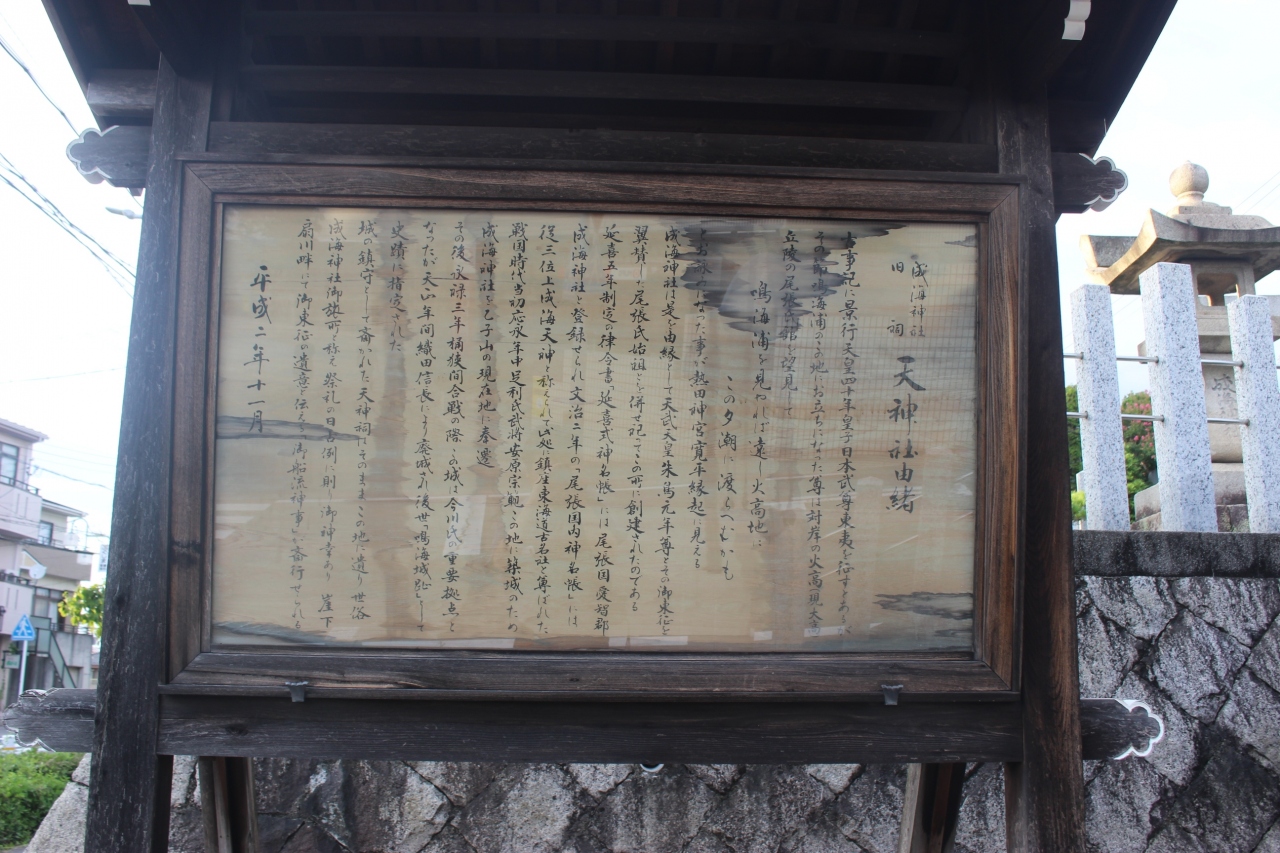 成海神社
旧祠 天神社由緒
古事記に景行天皇四十年皇子日本武尊東夷を征すとあるが
その節鳴海浦のこの地にお立ちになった尊は対岸の火高現大高
丘陵の尾張 館を望見して
鳴海浦を見やれば遠し火高地に
この夕潮に渡らへむかも
とお詠みになった事が熱田神宮寛平縁起に見える
成海神社は是を由縁として天武天皇朱鳥元年尊とその御東征を
翼賛した尾張氏始祖とを併せ祀ってこの所に創建されたのである
延喜五年制定の律令書「延喜式神名帳」には尾張国愛智郡
成海神社と登録せられ文治二年の「尾張国内神名帳」には
従三位上成海天神と称へられて此処に鎮座東海道古名社と尊ばれた
戦国時代当初応永年中足利氏武将安原宗範この地に築城のため
成海神社を乙子山の現在地に奉遷
その後永禄三年桶狭間合戦の際この城は今川氏の重要拠点と
なったが天正年間織田信長により廃城され後世「鳴海城趾」として
史蹟に指定された
城の鎮守として斎かれた天神祠はそのままこの地に遺り世俗
成海神社御旅所と称え祭礼の日古例に則り御神幸あり 崖下
扇川畔にて御東征の遺意を伝ふ「御船流神事」が斎行せられる
平成二年十一月